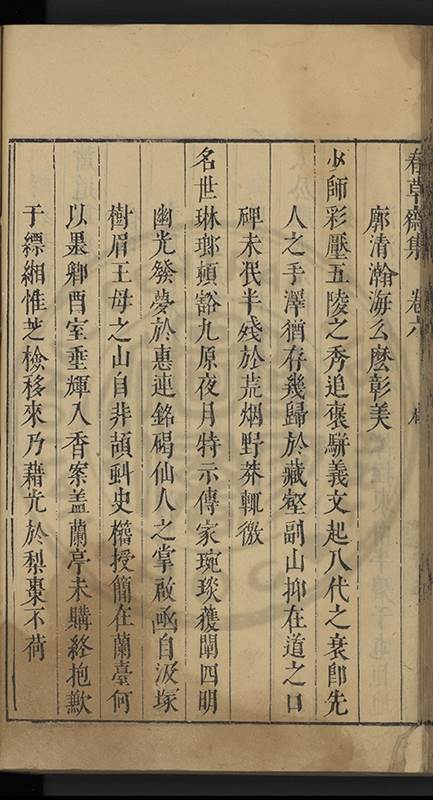 春草齋集 卷六
廓清瀚海么麼彰美
少師彩壓五陵之秀追褒駢義文起八代之衰卽先
人之手澤猶存幾歸於藏壑副山抑在道之口
碑未泯半殘於荒烟野莽輒徼
名世琳瑯頓豁九原夜月特示傳家琬琰獲闡四明
幽光發夢於惠連銘碣仙人之掌啟凾自汲塚
樹眉王母之山自非頡蚪史櫡授簡在蘭臺何
以墨卿酉室垂輝入香案盖蘭亭未購終抱歉
于縹緗惟芝檢移來乃藉光於梨棗不荷